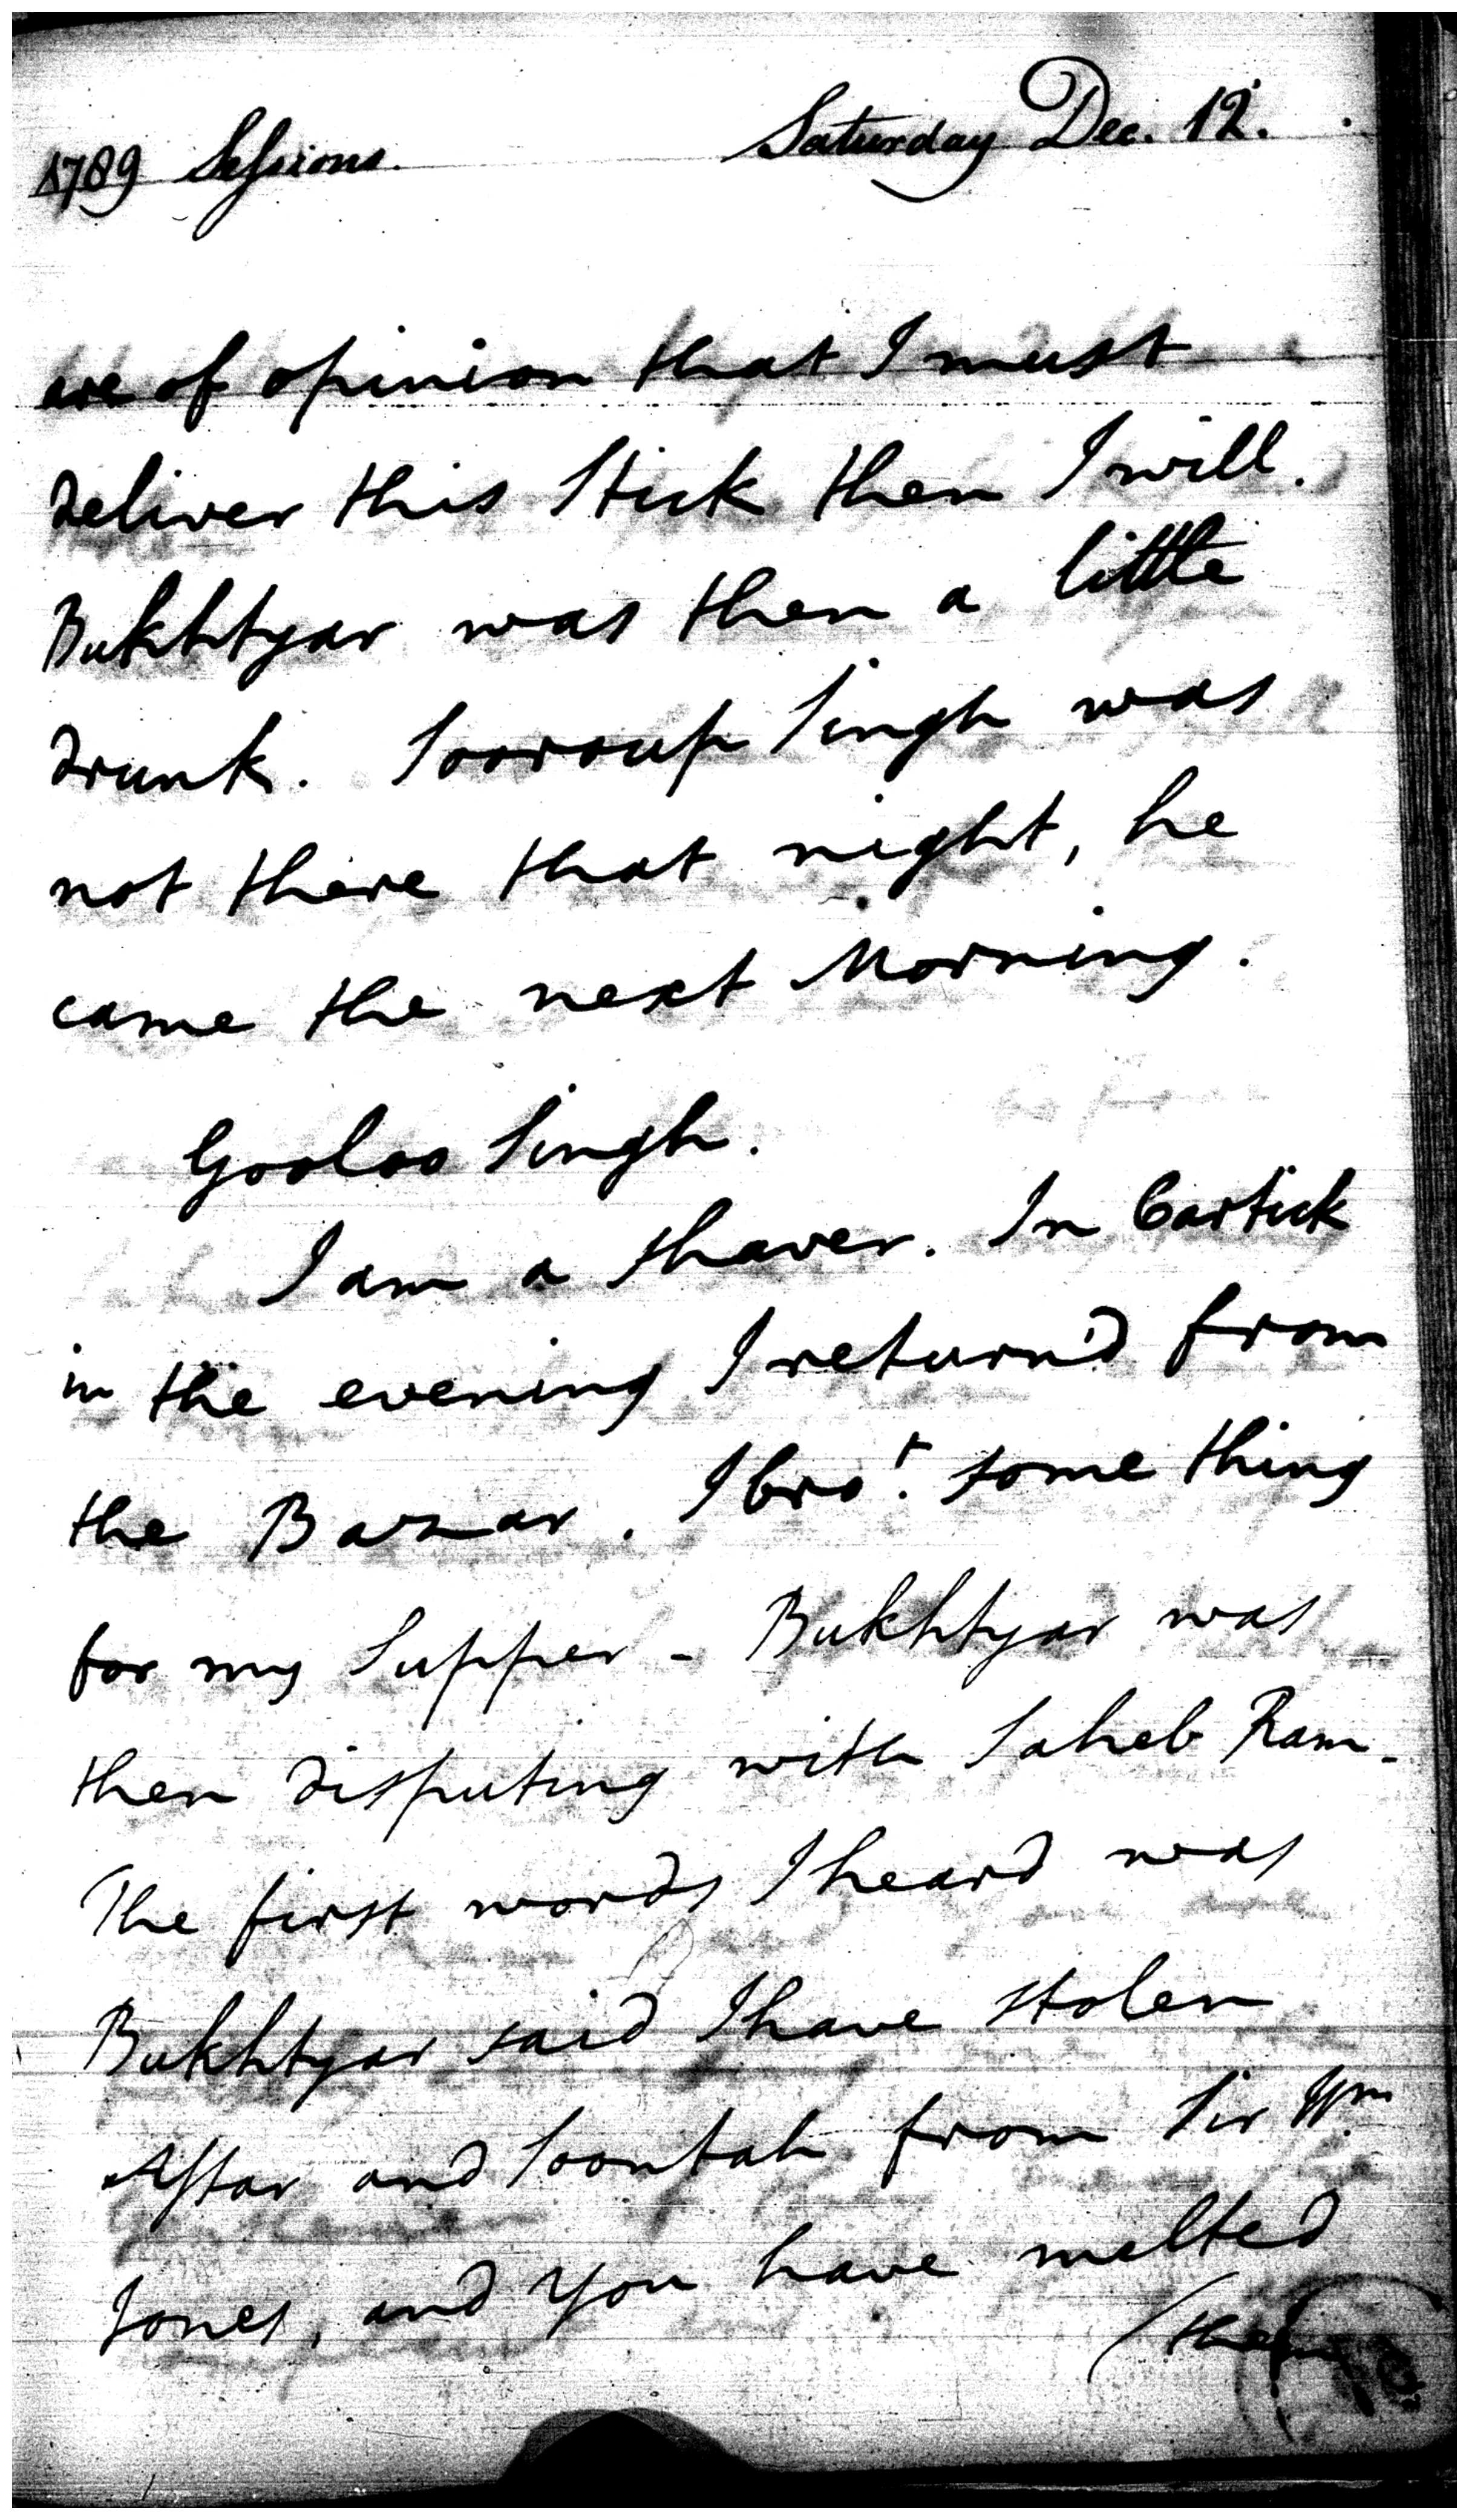 1789 Sessions. Saturday Dec. 12.
are of opinion that I must
deliver this Stick then I will.
Bukhtyar was then a little
drunk. Sooroup Singh was
not there that night, he
came the next Morning.
Gooloo Singh.
I am a shaver. In Cartick
in the evening I return'd from
the Bazar. I bro.t some thing
for my Supper - Bukhtyar was
then disputing with Saheb Ram-
The first words I heard was
Bukhtyar said I have stolen
and Soontah from Sir Wm
Jones, and you have melted
(them